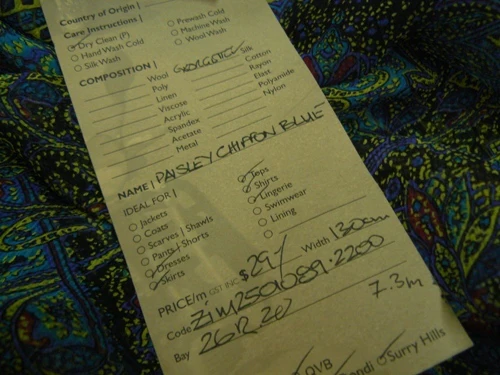 Country of Origin |
Care Instructions |
Dry Clean (P)
Hand Wash Cold
Silk Wash
Prewash Cold
Machine Wash
Wool Wash
COMPOSITION |
Wool GEORGETTE Silk
Poly Cotton
Linen Rayon
Viscose Elast
Acrylic Polyamide
Spandex Nylon
Acetate
Metal
NAME | PAISLEY CHIFFON BLUE
IDEAL FOR |
Jackets
Coats
Scarves | Shawls
Pants | Shorts
Dresses
Skirts
Tops
Shirts
Lingerie
Swimwear
Lining
PRICE/m GST INC $29/ Width 130cm
Code ZIM2501089.2200
Bay 26R.20 7.3m
QVB Surry Hills